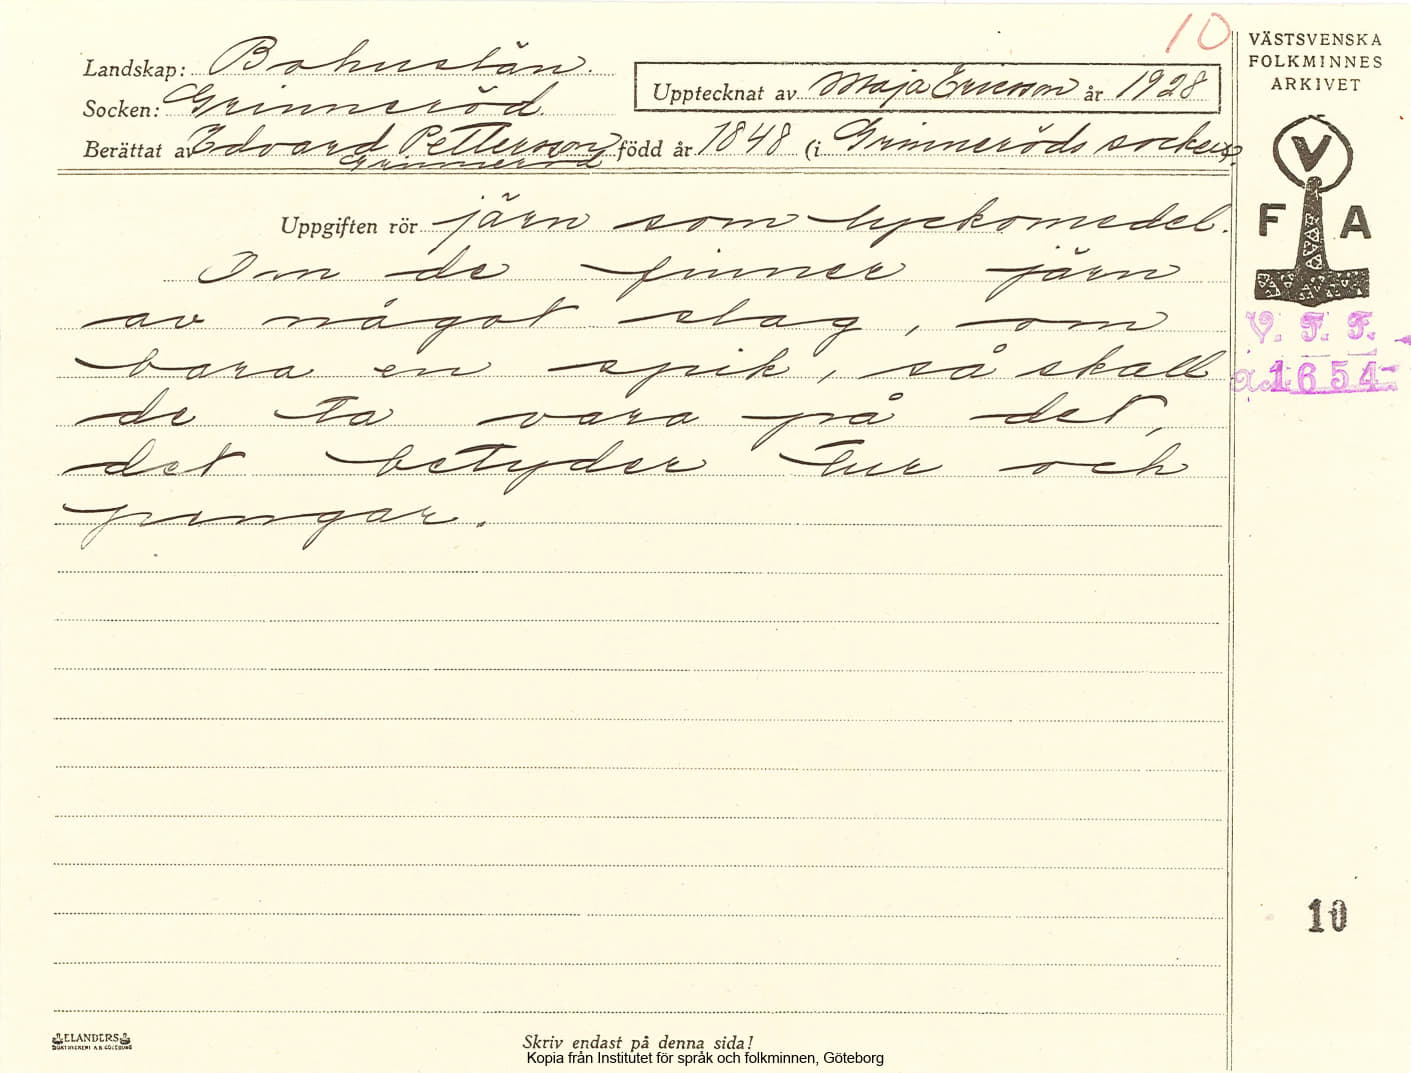 10
Landskap: Bohuslän.
Socken: Grinneröd.
Upptecknat av Maja Ericson år 1928
Berättat av Edvard Petterson född år 1848 (i Grinneröds socken).
Grinneröd
Uppgiften rör järn som lyckomedel.
Om de finner järn
av något slag, om
bara en spik, så skall
de ta vara på det,
det betyder tur och
pengar.
VÄSTSVENSKA
FOLKMINNES
ARKIVET
V
F A
V. F. F.
1654
10
ELANDERS
Skriv endast på denna sida!
Kopia från Institutet för språk och folkminnen, Göteborg